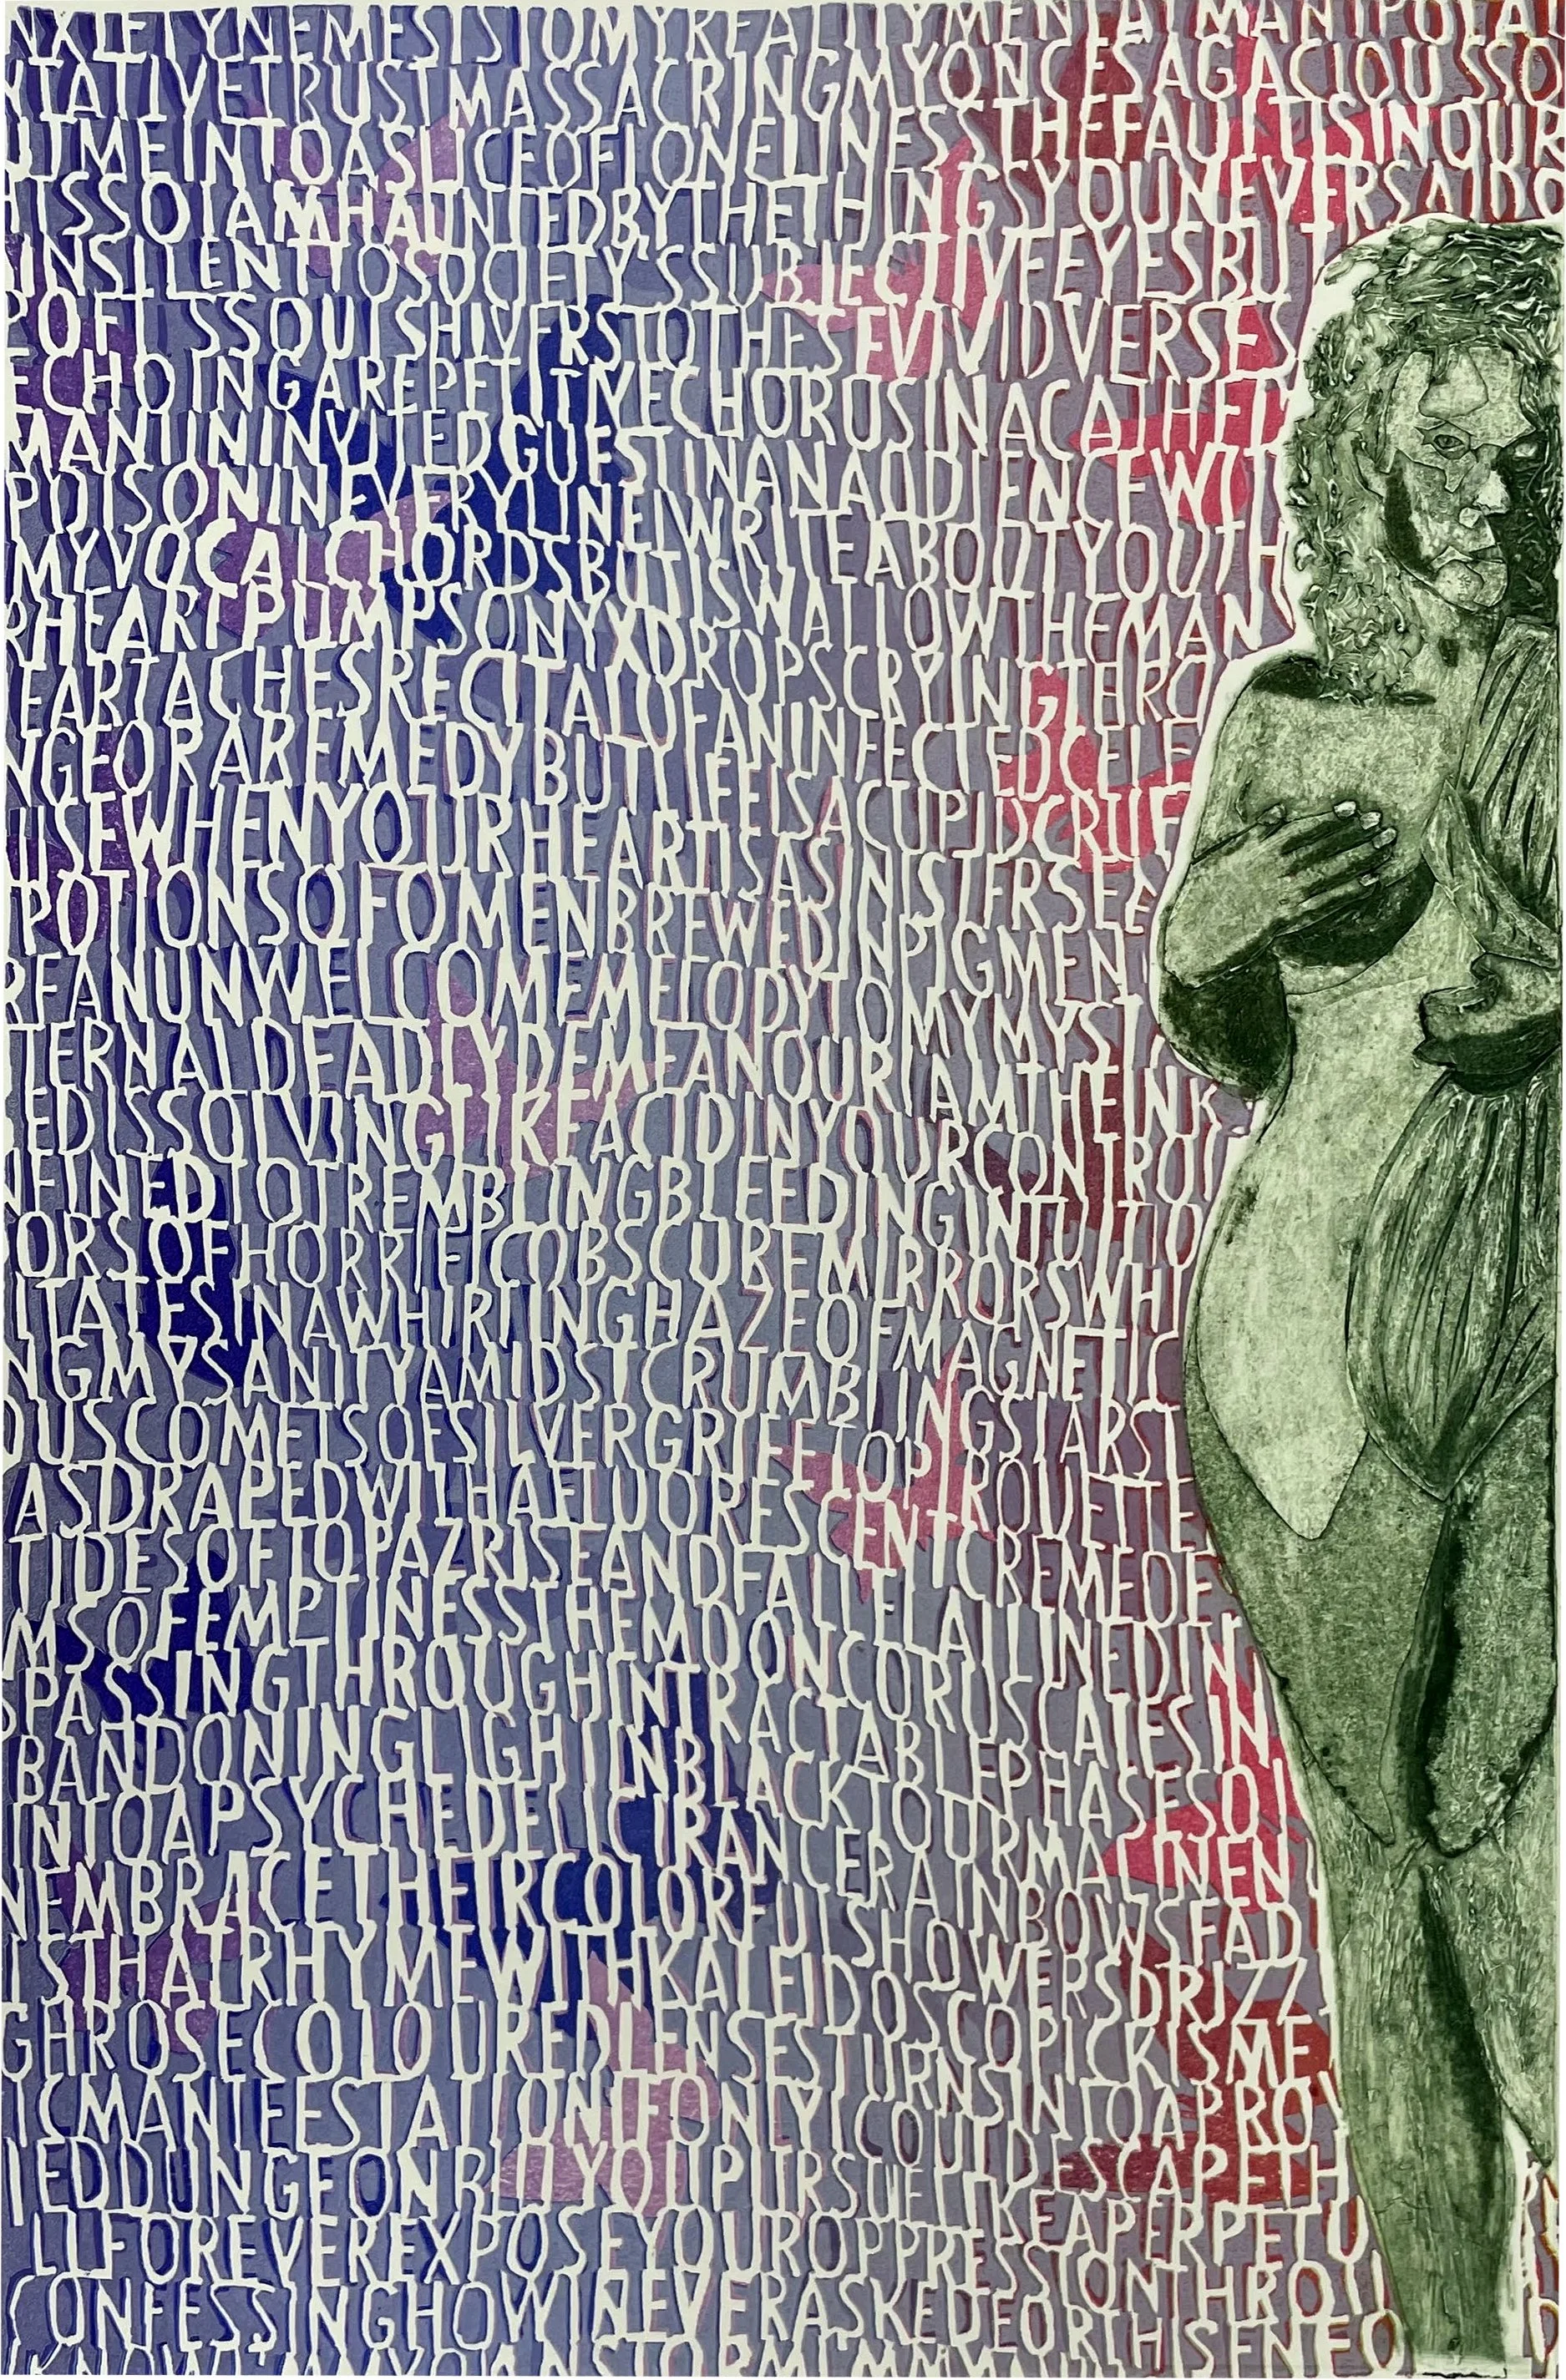 NXIETYNEMESISTOMYREALITYMENTALMANIPULA
TATIVETRUSTMASSACRINGMYONCESAGACIOUSSO
UTMEINTOASLICEOFLONELINESSTHEFAULTISINOUR
ISSOIAMHAUNTEDBYTHETHINGSYOUNEVERSAIDO
INSILENTTOSOCIETY'SSUBJECTIVEEYESBU
OFTISSOULSHIVERSTOTHESEVIVIDVERSES
ECHOINGAREPETITIVECHORUSINACATHE
MANUNINVITEDGUESTINANAUDIENCEWIT
POISONINEVERYLINEIWRITEABOUTYOUTH
MYVOCALCHORDSBUTISWALLOWTHEMAN
RHEARTPUMPSONYXDROPSCRYINGTHRO
EARTACHESRECITALOFANINFECTEDCELE
NGEORAREMEDYBUTLIFEISACUPIDCRUE
USEWHENYOURHEARTISASINISTERSEE
POTIONSOFOMENBREWEDINPIGMEN
REANUNWELCOMEMELODYTOMYMYSTI
TERNALDEADLYDEMEANOURIAMTHEINK
EDISSOLVINGLIKEACIDINYOURCONTROL
NFINEDTOTREMBLINGBLEEDINGINTUITIO
ORSOFHORRIFICOBSCUREMIRRORSWHI
ITATESINAWHIRLINGHAZEOFMAGNETIC
NGMYSANITYAMIDSTCRUMBLINGSTARST
OUSCOMETSOFSILVERGRIEFTOPIROUETTE
ASDRAPEDWITHAFLUORESCENTCREMEDE
TIDESOFTOPAZRISEANDFALLFLATLINEDIN
MSOFEMPTINESSTHEMOONCORUSCATESIN
SPASSINGTHROUGHINTRACTABLEPHASESOF
BANDONINGLIGHTINBLACKTOURMALINEN
INTOAPSYCHEDELICTRANCERAINBOWSFAD
NEMBRACETHEIRCOLORFULSHOWERSDRIZZ
ISTHATRHYMEWITHKALEIDOSCOPICKISME
GHROSECOLOUREDLENSESTURNSINTOAPROV
ICMANIFESTATIONIFONLYICOULDESCAPETH
IEDDUNGEONBUTYOUPURSUELIKEAPERPETU
LLFOREVEREXPOSEYOUROPPRESSIONTHROU
CONFESSINGHOWINEVERASKEDFORTHSENFO